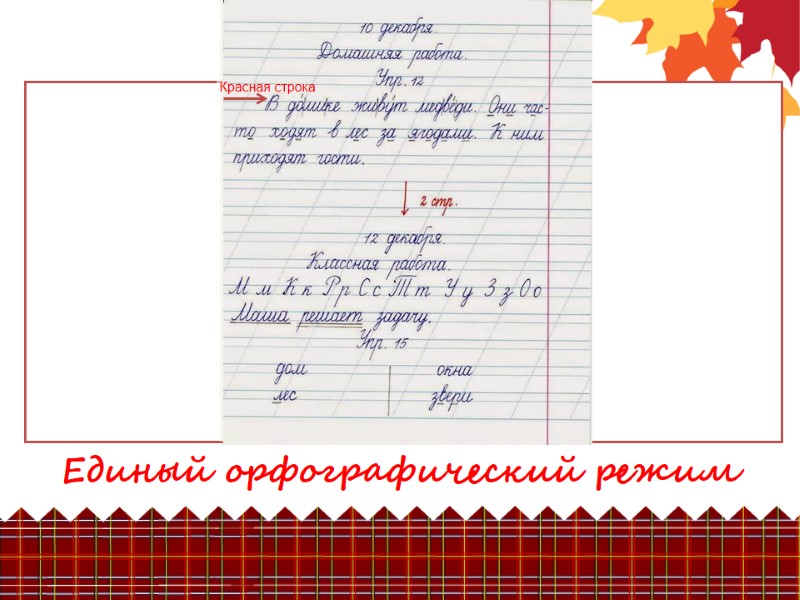 10 декабря.
Домашняя работа.
Упр. 12
Красная строка
В домике живут медведи. Они час-
то ходят в лес за ягодами. К ним
приходят гости.
2 стр.
12 декабря.
Классная работа.
М м К к Р р С с Т т У у З з О о
Маша решает задачу.
Упр. 15
дом окна
лес звери
Единый орфографический режим